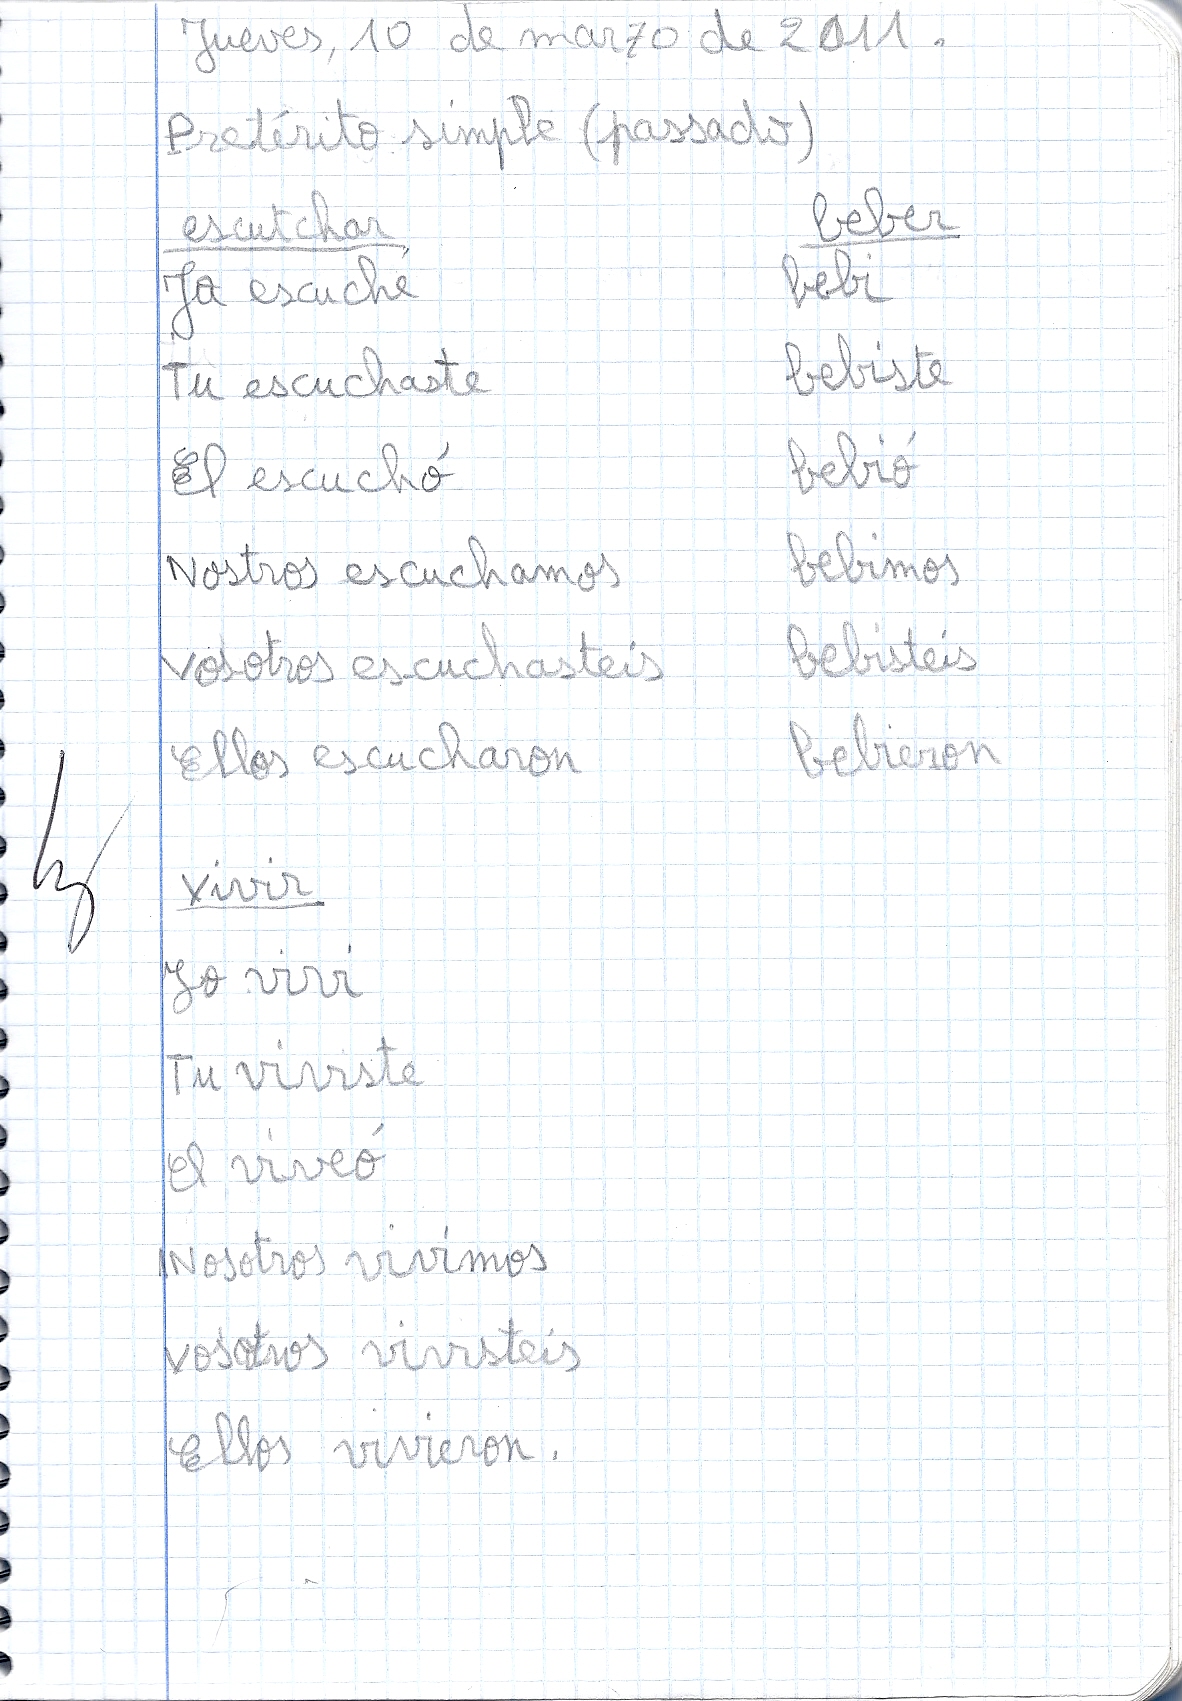 Jueves, 10 de marzo de 2011.
Pretérito simple (passado)
escutchar beber
Ja escuché bebi
Tu escuchaste bebiste
El escuchó bebió
Nostros escuchamos bebimos
Vosotros escuchasteis bebisteis
Ellos escucharon bebieron
Vivir
Yo vivi
Tu viviste
El viveó
Nosotros vivimos
Vosotros vivisteis
Ellos vivieron.